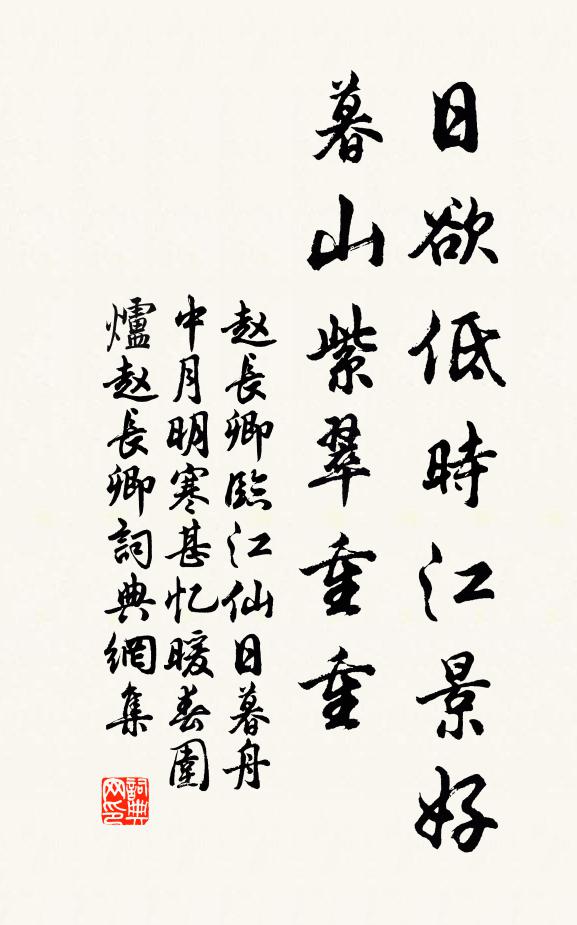 日欲低時江景好
暮山紫翠重重
赵長卿臨江仙日暮舟
中月明寒甚忆暖春園
爐赵長卿詞典網集
詞典
网印